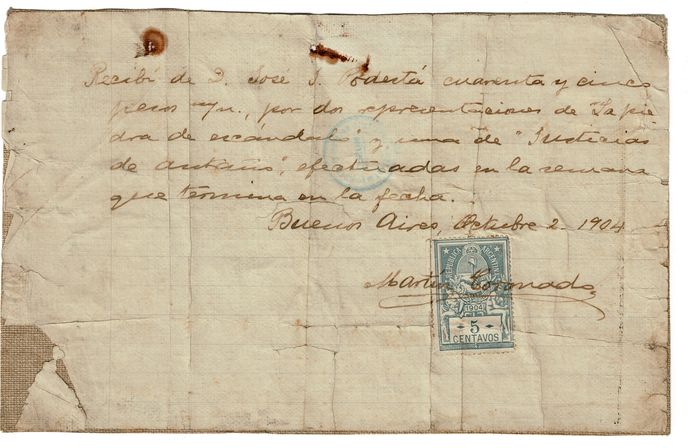 Recibí de D. José J. Podestá cuarenta y cinco
pesos m/n., por dos representaciones de "La pie
dra de escándalo" y una de "Justicias
de antaño", efectuadas en la semana
que termina en la fecha.
Buenos Aires, Octubre 2 - 1904
Martín Coronado
REPUBLICA ARGENTINA
1904
5
CENTAVOS